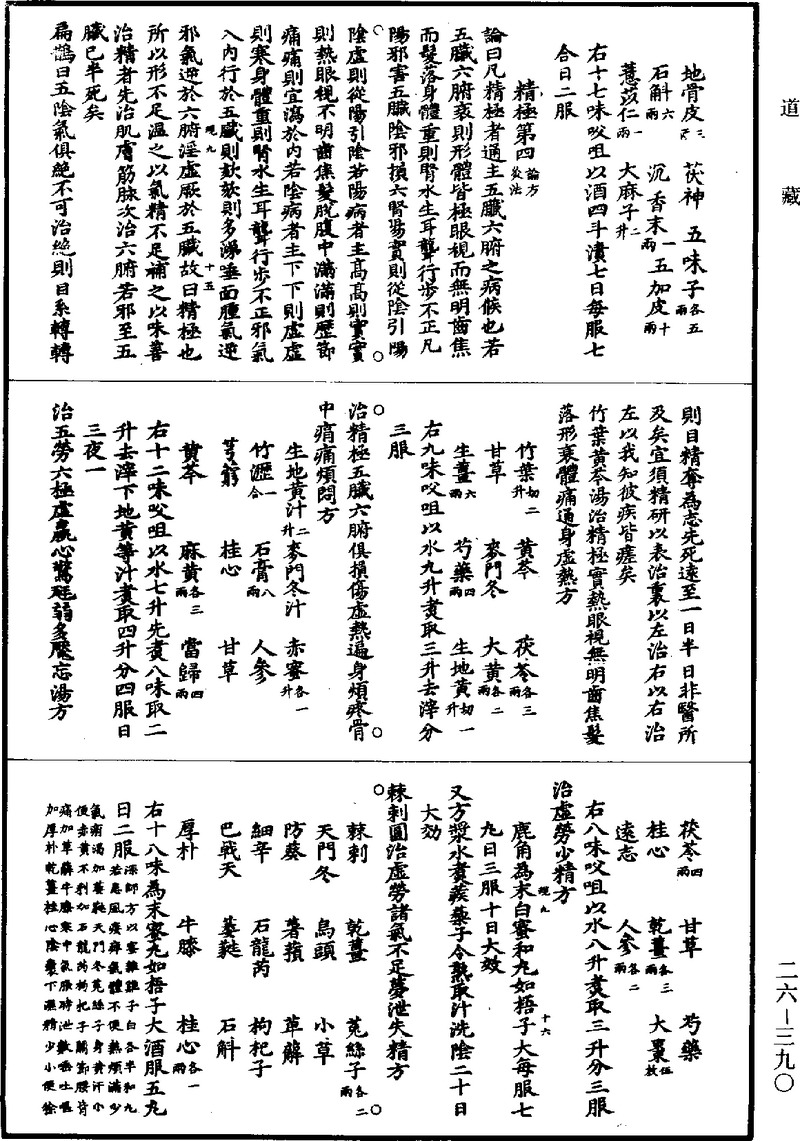 道藏
地骨皮三兩 茯神 五味子各五兩
石斛六兩 沉香末一兩 五加皮十兩
薏苡仁一兩 大麻子二升
右十七味㕮咀以酒四斗漬七日每服七
合日二服
精極第四論方灸法
論曰凡精極者通主五臟六腑之病候也若
五臟六腑衰則形體皆極眼視而無明齒焦
而髮落身體重則腎水生耳聾行步不正凡
陽邪害五臟陰邪損六腎陽實則從陰引陽
陰虛則從陽引陰若陽病者主高高則實實
則熱眼視不明齒焦髮脫腹中滿滿則歷節
痛痛則宜瀉於內若陰病者主下下則虛虛
則寒身體重則腎水生耳聾行步不正邪氣
入內行於五臟則欬欬則多涕唾面腫氣逆
邪氣逆於六腑淫虛厥於五臟故曰精極也
所以形不足溫之以氣精不足補之以味善
治精者先治肌膚筋脉次治六腑若邪至五
臟已半死矣
扁鵲曰五陰氣俱絕不可治絕則目系轉轉
現九 十五
則目精奪為志先死遠至一日半日非醫所
及矣宜須精研以表治裏以左治右以右治
左以我知彼疾皆瘥矣
竹葉黃芩湯治精極實熱眼視無明齒焦髮
落形衰體痛通身虛熱方
竹葉切二升 黃芩 茯苓各三兩
甘草 麥門冬 大黃各二兩
生薑六兩 芍藥四兩 生地黃切一升
右九味㕮咀以水九升煑取三升去滓分
三服
治精極五臟六腑俱損傷虛熱遍身煩疼骨
中痟痛煩悶方
生地黃汁二升 麥門冬汁 赤蜜各一升
竹瀝一合 石膏八兩 人參
芎藭 桂心 甘草
黃芩 麻黃各三兩 當歸四兩
右十二味㕮咀以水七升先煑八味取二
升去滓下地黃等汁煑取四升分四服日
三夜一
治五勞六極虛羸心驚尪弱多魘忘湯方
茯苓四兩 甘草 芍藥
桂心 乾薑各三兩 大棗伍枚
遠志 人參各二兩
右八味㕮咀以水八升煑取三升分三服
治虛勞少精方
鹿角為末白蜜和丸如梧子大每服七
九日三服十日大效
現九 十六
又方漿水煑蒺藜子令熟取汁洗陰二十日
大効
棘刺圓治虛勞諸氣不足夢泄失精方
棘刺 乾薑 菟絲子各二兩
天門冬 烏頭 小草
防葵 薯蕷 萆薢
細辛 石龍芮 枸杞子
巴戟天 葳蕤 石斛
厚朴 牛膝 桂心各一兩
右十八味為末蜜丸如梧子大酒服五丸
日二服深師方以蜜雜雞子白各半和丸
若患風痿痺氣體不便熱煩滿少
氣消渴加葳蕤天門冬菟絲子身黃汗小
便赤黃不利加石龍芮枸杞子關節腰背
痛加萆薢牛膝寒中氣脹時泄數唾吐嘔
加厚朴乾薑桂心陰囊下濕精少小便餘
二六—三九〇